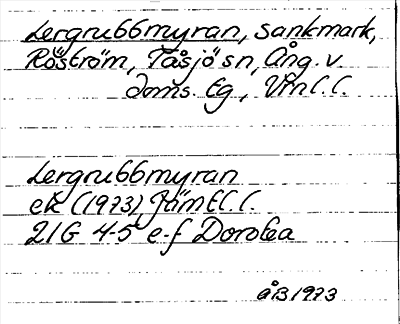 Lergrubbmyran, sankmark,
Röström, Tåsjö sn, Ång. v.
doms. tg, Vnl. l.
Lergrubbmyran
ek (1973) Jämtl. l.
21G 4-5 e-f Dorotea
åB 1973